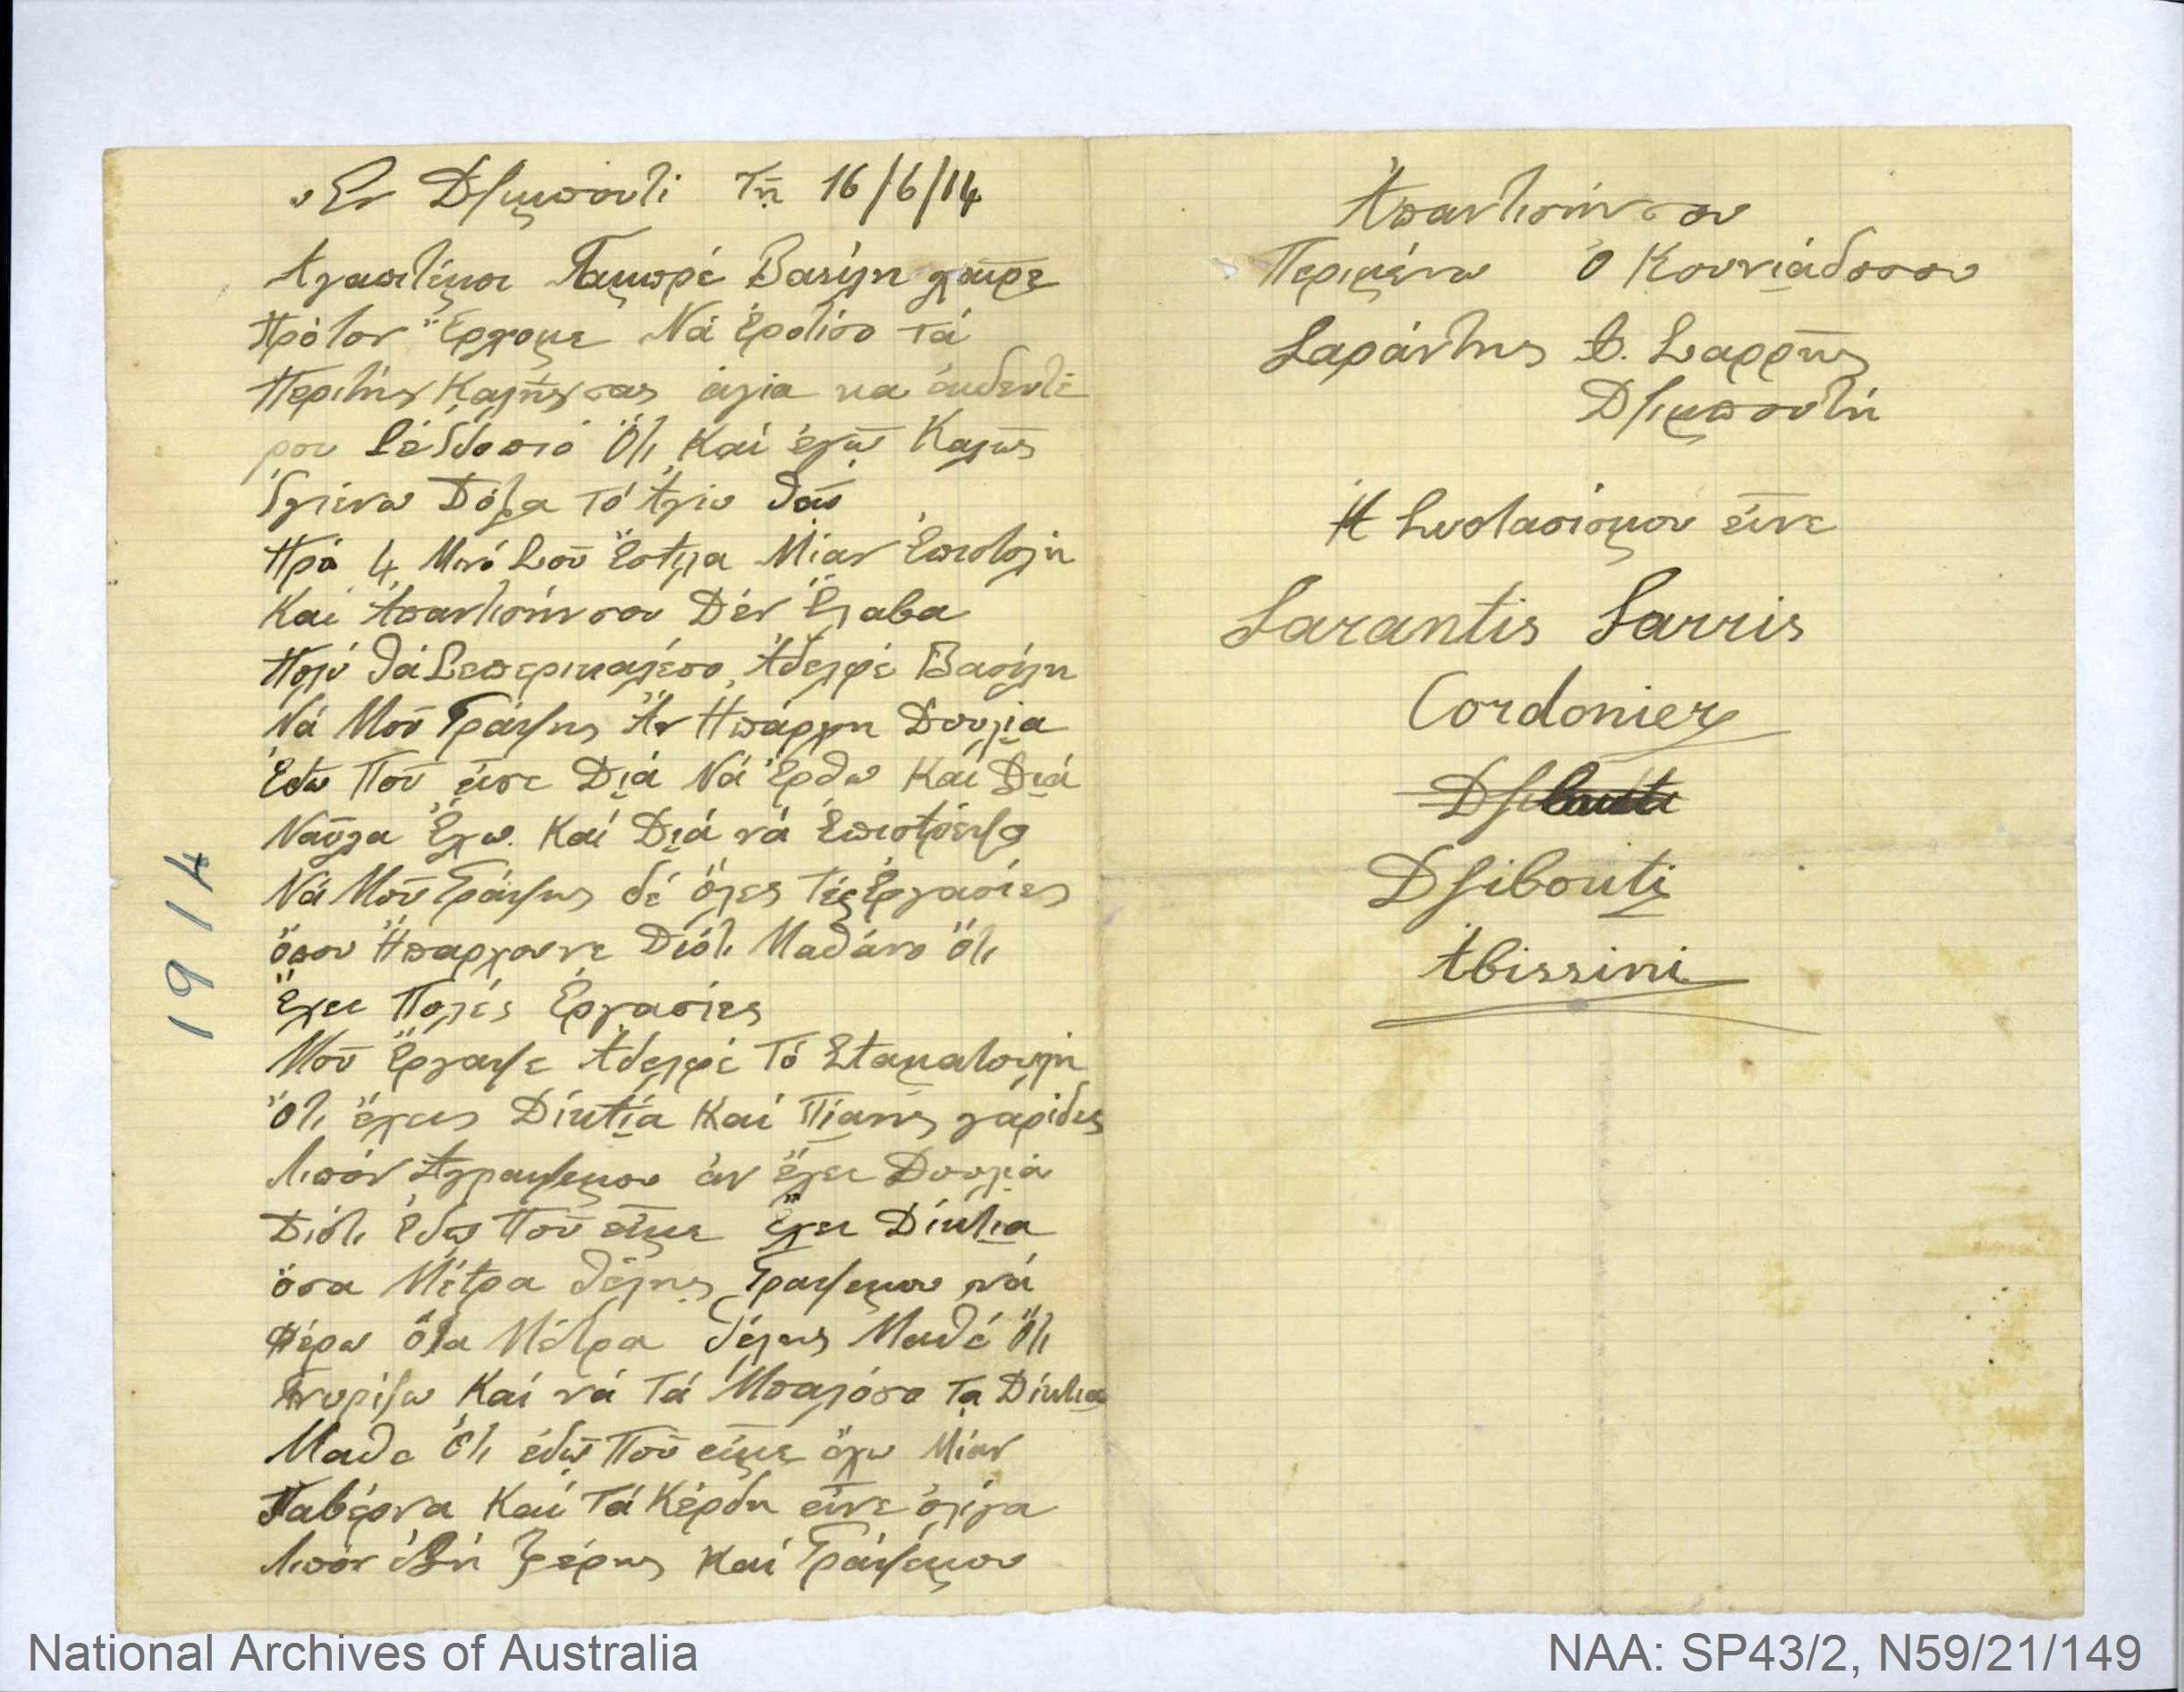 Ἐν Dζιμπουτι τῆ 16/6/14
Αγαπιτέμοι Γαμπρέ Βασίλη χαῖρε
Πρότον Ἔρχομε Νά Ἐροτίσο τά
Περιτῆς Καλῆς σας ἡγία κα
ρου Ὅτι Καί ἐγῶ Καλῶς
Ἱγιένω Dόξα τό Ἁγίω
Πρό 4 Μινό Σοῦ Ἔστιλα Μίαν Ἐπιστολήν
Καί Ἀπαντισήν σου Dέν Ἔλαβα
Πολύ θά Σεπερικαλέσο Ἀδελφέ Βασίλη
Νά Μοῦ Γράψης Ἄν Ηπάρχη Dουλια
Ἐδῶ Ποῦ εἶσε Dιά Νά Ἐρθω Καί Dιά
Ναῦλα Ἔχω. Καί Dιά νά Ἐπιστρέψο
Νά Μοῦ Γράψης δέ ὅλες τές Ἐργασίες
ὅσου Ηπαρχουνε Dιότι Μαθάνο Ὅτι
Ἔχει Πολές Ἐργασίες
Μοῦ Ἔργαψε Ἀδελφέ Τό Σταματούλη
Ὅτι ἔχεις Dίκτια Καί Πιανῆς γαρίδες
λιπόν Αγραψεμου ἀν ἔχει Dουλιά
Dιότι ἐδῶ Ποῦ εἶμε ἔχει Dίκτια
ὅσα Μέτρα θέλης Γραψεμου νά
Φέρω ὅσα Μέτρα θέλης Μαθέ Ὅτι
Γνορίζω Καί νά Τά Μπαλόσο Τα Dίκτια
Μαθε Ὅτι ἐδῶ Ποῦ εἶμε ἔχω Μίαν
Ταβέρνα Καί Τά Κέρδη εἶνε ὀλίγα
λιπόν Καί Γράψεμου
1914
Ἀπαντισήν σου
Περιμένω Ὁ Κουνιάδοσου
Σαράντης Δ. Σαρρῆς
Dζιμπουτή
Η Συστασίσμου εἶνε
Sarantis Sarris
Cordonier
Dζibouti
Abissini
National Archives of Australia
NAA: SP43/2, N59/21/149